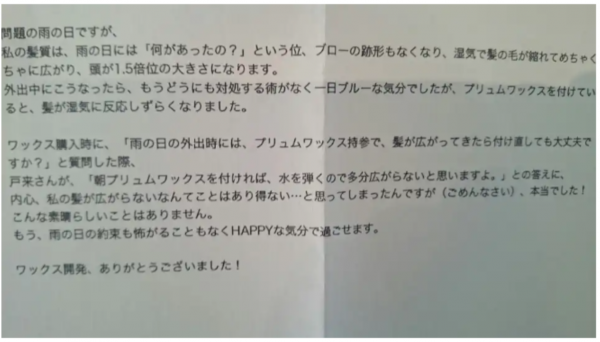 問題の雨の日ですが、
私の髪質は、雨の日には「何があったの？」という位、ブローの跡形もなくなり、湿気で髪の毛が縮れてめちゃく
ちゃに広がり、頭が1.5倍位の大きさになります。
外出中にこうなったら、もうどうにも対処する術がなく一日ブルーな気分でしたが、プリュムワックスを付けてい
ると、髪が湿気に反応しずらくなりました。
ワックス購入時に、「雨の日の外出時には、プリュムワックス持参で、髪が広がってきたら付け直しても大丈夫で
すか？」と質問した際、
戸来さんが、「朝プリュムワックスを付ければ、水を弾くので多分広がらないと思いますよ。」との答えに、
内心、私の髪が広がらないなんてことはあり得ない…と思ってしまったんですが（ごめんなさい）、本当でした！
こんな素晴らしいことはありません。
もう、雨の日の約束も怖がることもなくHAPPYな気分で過ごせます。
ワックス開発、ありがとうございました！